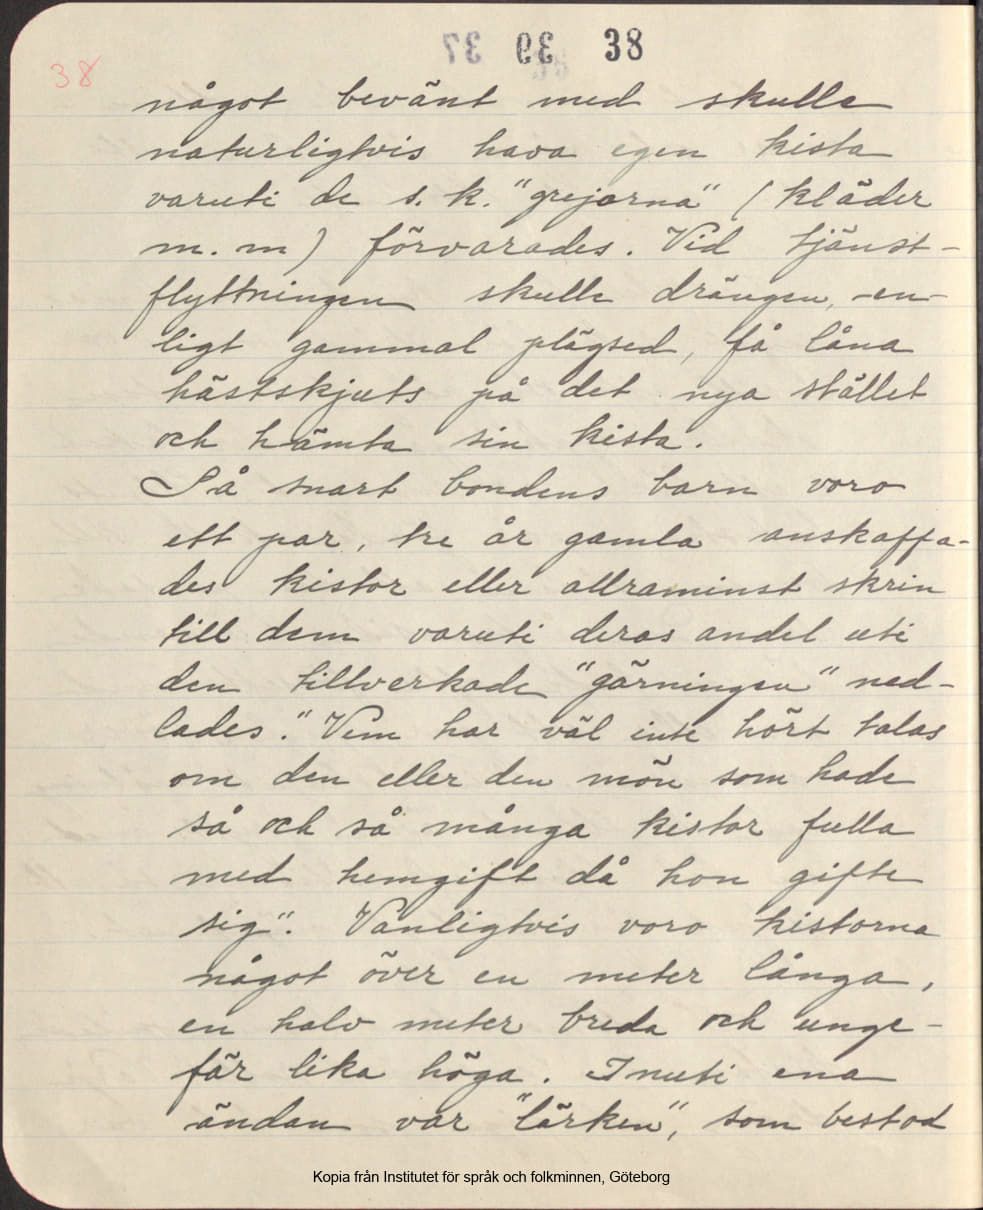 37 39 38
38
något bevänt med skulle
naturligtvis hava egen kista
varuti de s. k. "grejorna" (kläder
m. m) förvarades. Vid tjänst-
flyttningen skulle drängen, en-
ligt gammal plägsed, få låna
hästskjuts på det nya stället
och hämta sin kista.
Så snart bondens barn voro
ett par, tre år gamla anskaffa-
des kistor eller allraminst skrin
till dem varuti deras andel uti
den tillverkade "gärningen" ned-
lades. "Vem har väl inte hört talas
om den eller den mön som hade
så och så många kistor fulla
med hemgift då hon gifte
sig". Vanligtvis voro kistorna
något över en meter långa,
en halv meter breda och unge-
fär lika höga. Inuti ena
ändan var "lärken", som bestod
Kopia från Institutet för språk och folkminnen, Göteborg